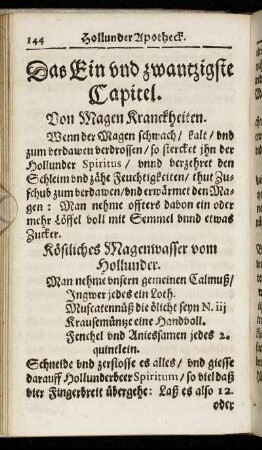 144 Hollunder Apotheck.
Das Ein vnd zwantzigste
Capitel.
Von Magen Kranckheiten.
Wenn der Magen schwach / kalt / vnd
zum verdawen verdrossen / so stercket jhn der
Hollunder Spiritus / vnnd verzehret den
Schleim vnd zähe Feuchtigkeiten / thut Zu-
schub zum verdawen / vnd erwärmet den Ma-
gen : Man nehme offters davon ein oder
mehr Löffel voll mit Semmel vnnd etwas
Zucker.
Köstliches Magenwasser vom
Hollunder.
Man nehme vnsern gemeinen Calmuß /
Ingwer jedes ein Loth.
Muscatennüß die ölicht seyn N. iij
Krausemüntze eine Handvoll.
Fenchel vnd Aniessamen jedes 2.
quintlein.
Schneide vnd zerstosse es alles / vnd giesse
darauff Hollunderbeer Spiritum / so viel daß
vier Fingerbreit übergehe: Laß es also 12.
oder